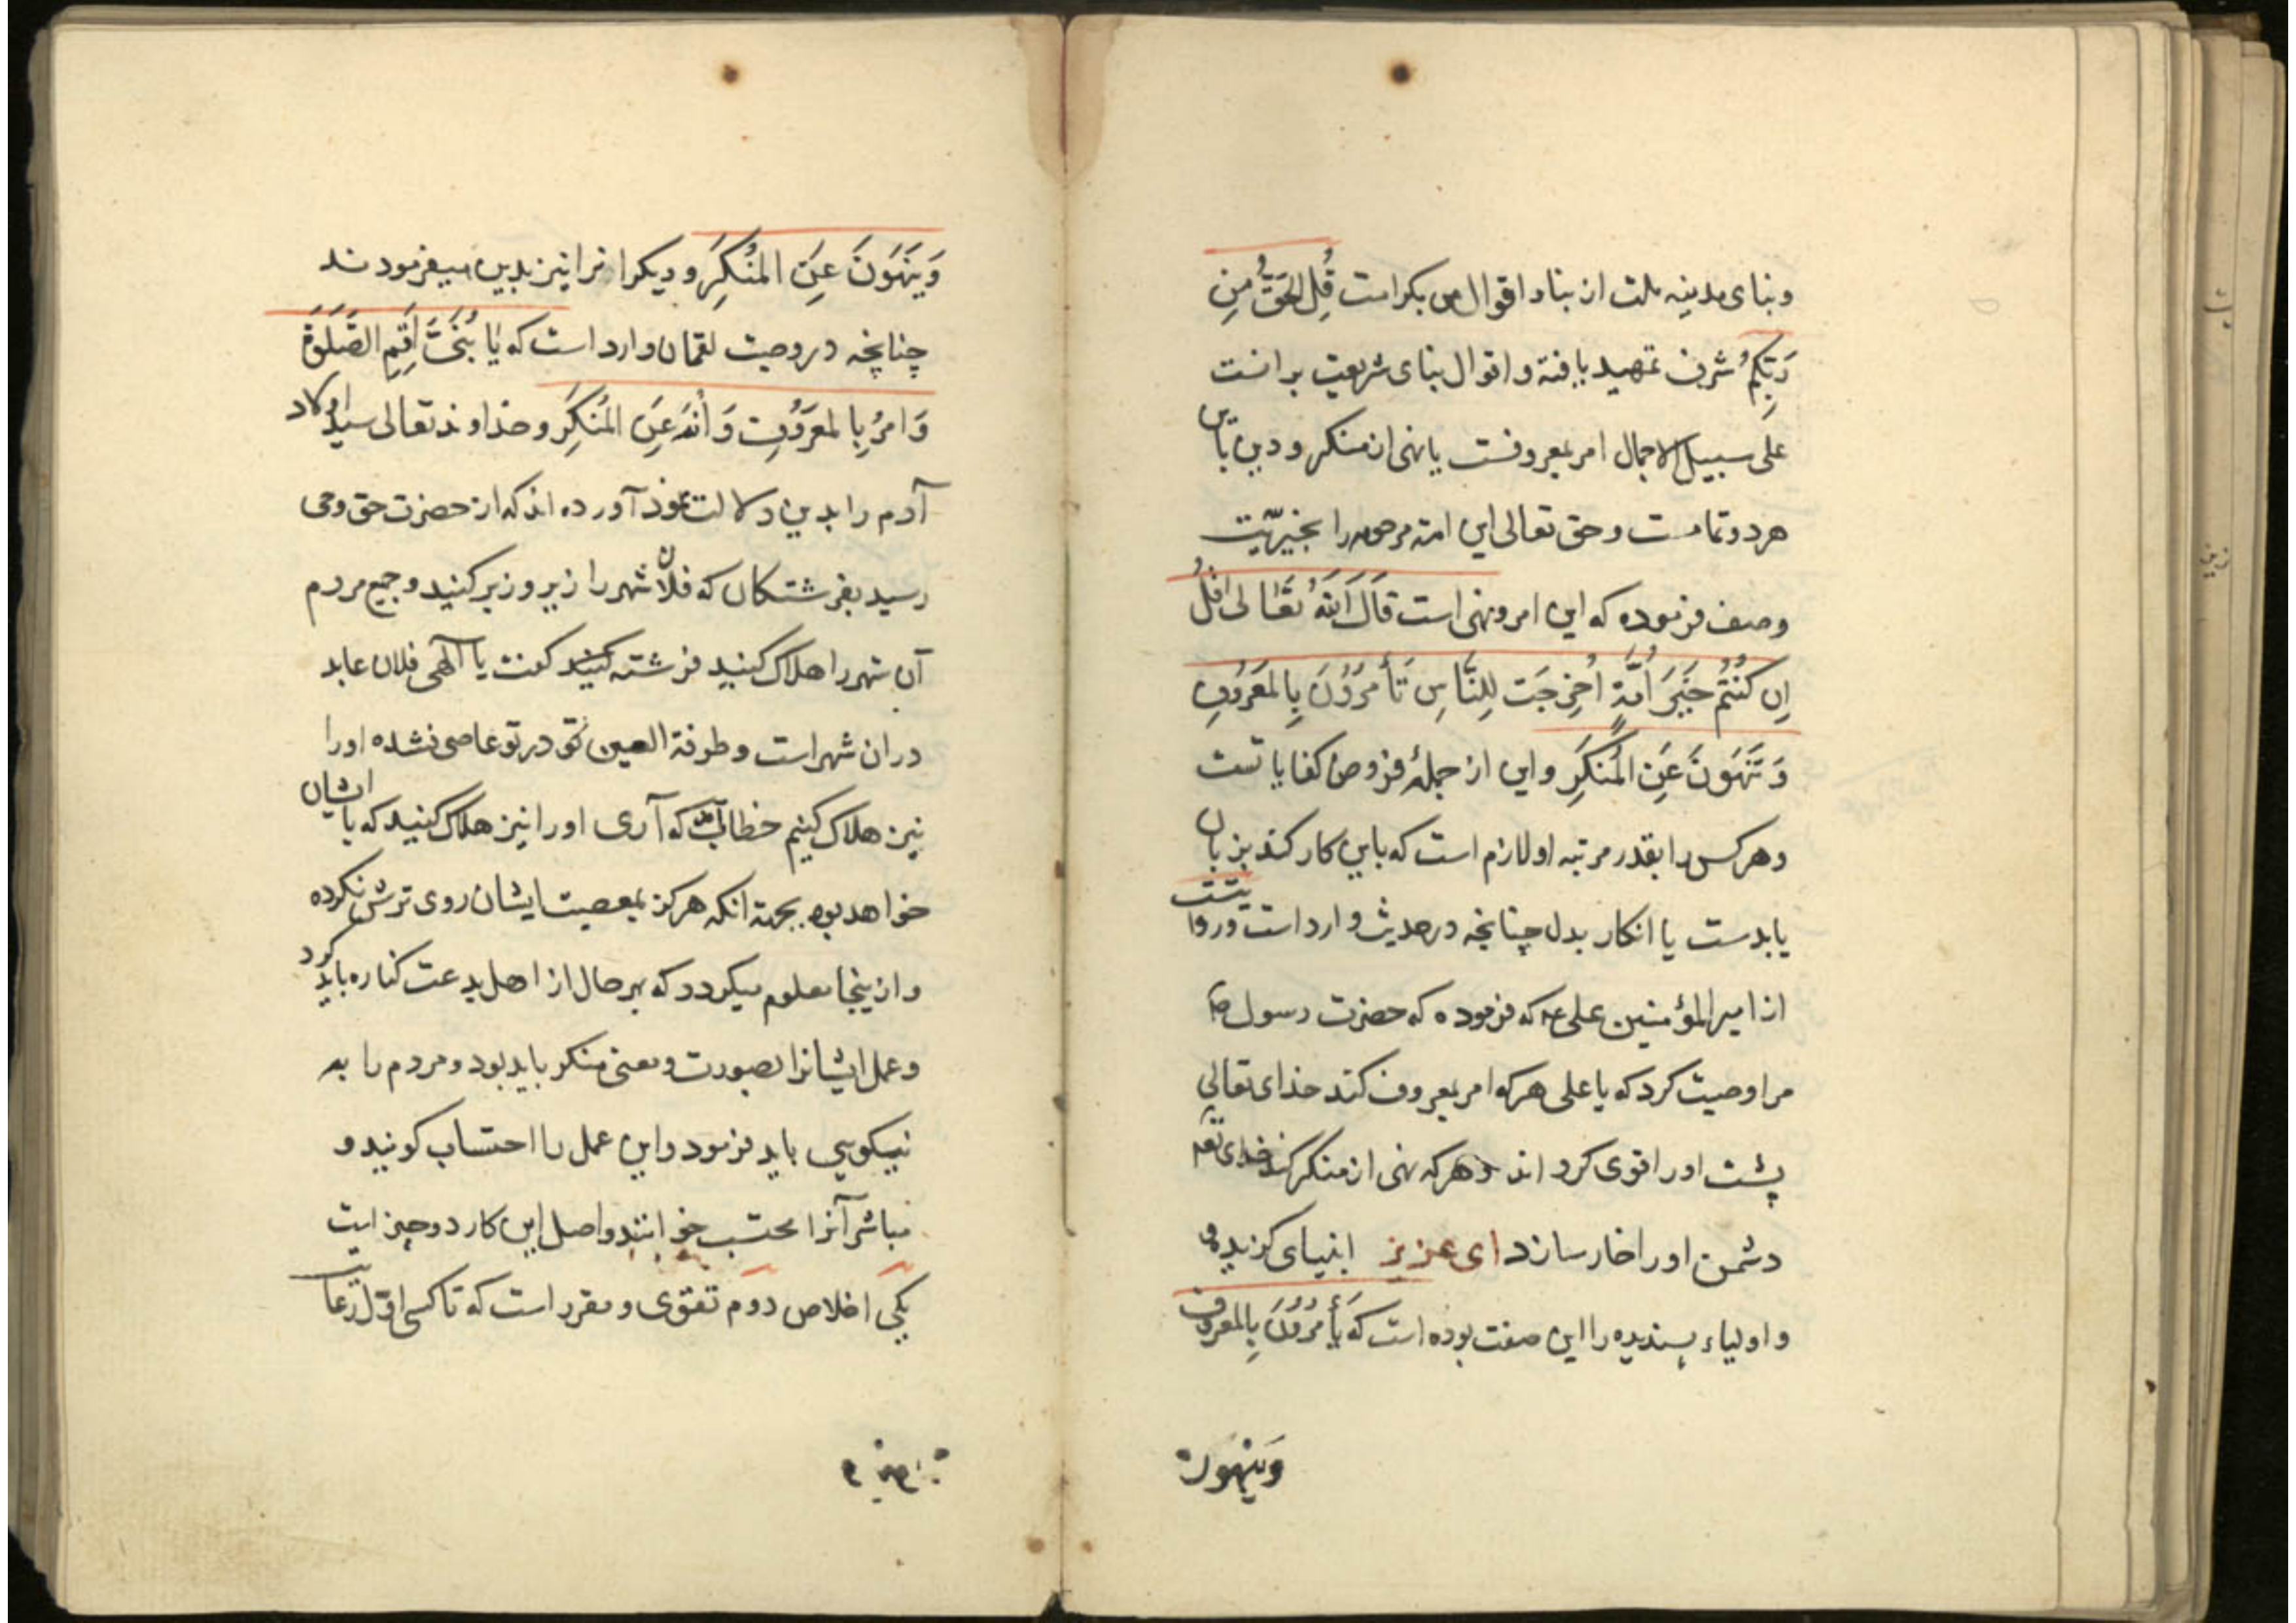 وبنای مدینه ملت از بناد اقوال من بکرامت قُلِ الحَقُّ مِن
رَبِّکُم شرف تمهید یافته و اقوال بنای شریعت برانست
علی سبیل الاجمال امر بمعروفست یا نهی از منکر و دین باین
هر دو تمامست و حق تعالی این امة مرحومه را بخیریّت
وصف فرموده که این امر و نهی است قَالَ اللهُ تعَالی
کُنتُم خَیرَ اُمَّةٍ اُخرِجَت لِلنَّاسِ تَأمُرُونَ بِالمَعرُوفِ
وَتَنهَونَ عَنِ المُنکَرِ و این از جملهٔ فروض کفایاتست
و هر کس را بقدر مرتبه او لازم است که باین کار کند بزبان
یا بدست یا انکار بدل چنانچه در حدیث وارد است و روایتست
از امیر المؤمنین علی عه که فرموده که حضرت رسول صم
مرا وصیت کرد که یا علی هر که امر بمعروف کند خدای تعالی
پشت او را قوی کرداند و هر که نهی از منکر کند خدای تعه
دشمن او را خار سازد ای عزیز انبیای کزیده
و اولیاء پسندیده را این صفت بوده است که یَأمُرُونَ بِالمَعرُوفِ
وَیَنهَون
وَیَنهَونَ عَنِ المُنکَرِ و دیکرانرا نیز بدین میفرمودند
چنانچه در وصیت لقمان وارد است که یا بُنَیَّ اَقِمِ الصَّلوٰةَ
وَامُر بِالمَعرُوفِ وَانهَ عَنِ المُنکَرِ و خداوند تعالی سید اولاد
آدم را بدین دلالت نمود آورده اند که از حضرت حق وحی
رسید بفرشتکان که فلان شهر را زیر و زبر کنید و جمیع مردم
آن شهر را هلاک کنید فرشته کفت یا آلهی فلان عابد
در ان شهر است و طرفة العین در تو عاصی نشده او را
نیز هلاک کنیم خطاب آمد که آری او را نیز هلاک کنید که با ایشان
خواهد بود بجهة انکه هرکز بمعصیت ایشان روی ترش نکرده
و از ینجا معلوم میکردد که بهر حال از اهل بدعت کناره باید کرد
و عمل ایشانرا بصورت و معنی منکر باید بود و مردم را به
نیکویی باید فرمود و این عمل را احتساب کویند و
مباشر آنرا محتسب خوانند و اصل این کار دو چیز است
یکی اخلاص دوم تقوی و مقرر است که تا کسی اوّل رعایت